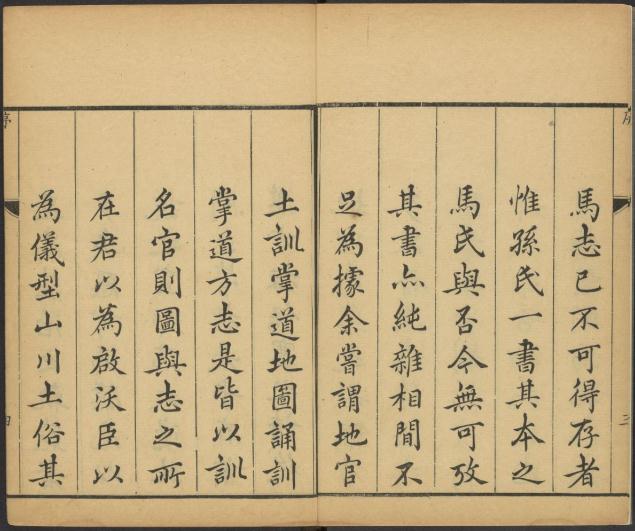 馬志已不可得存者
惟孫氏一書其本之
馬氏與否今無可攷
其書亦純雜相間不
足為據余嘗謂地官
土訓掌道地圖誦訓
掌道方志是皆以訓
名官則圖與志之所
在君以為啟沃臣以
為儀型山川土俗其
序
三